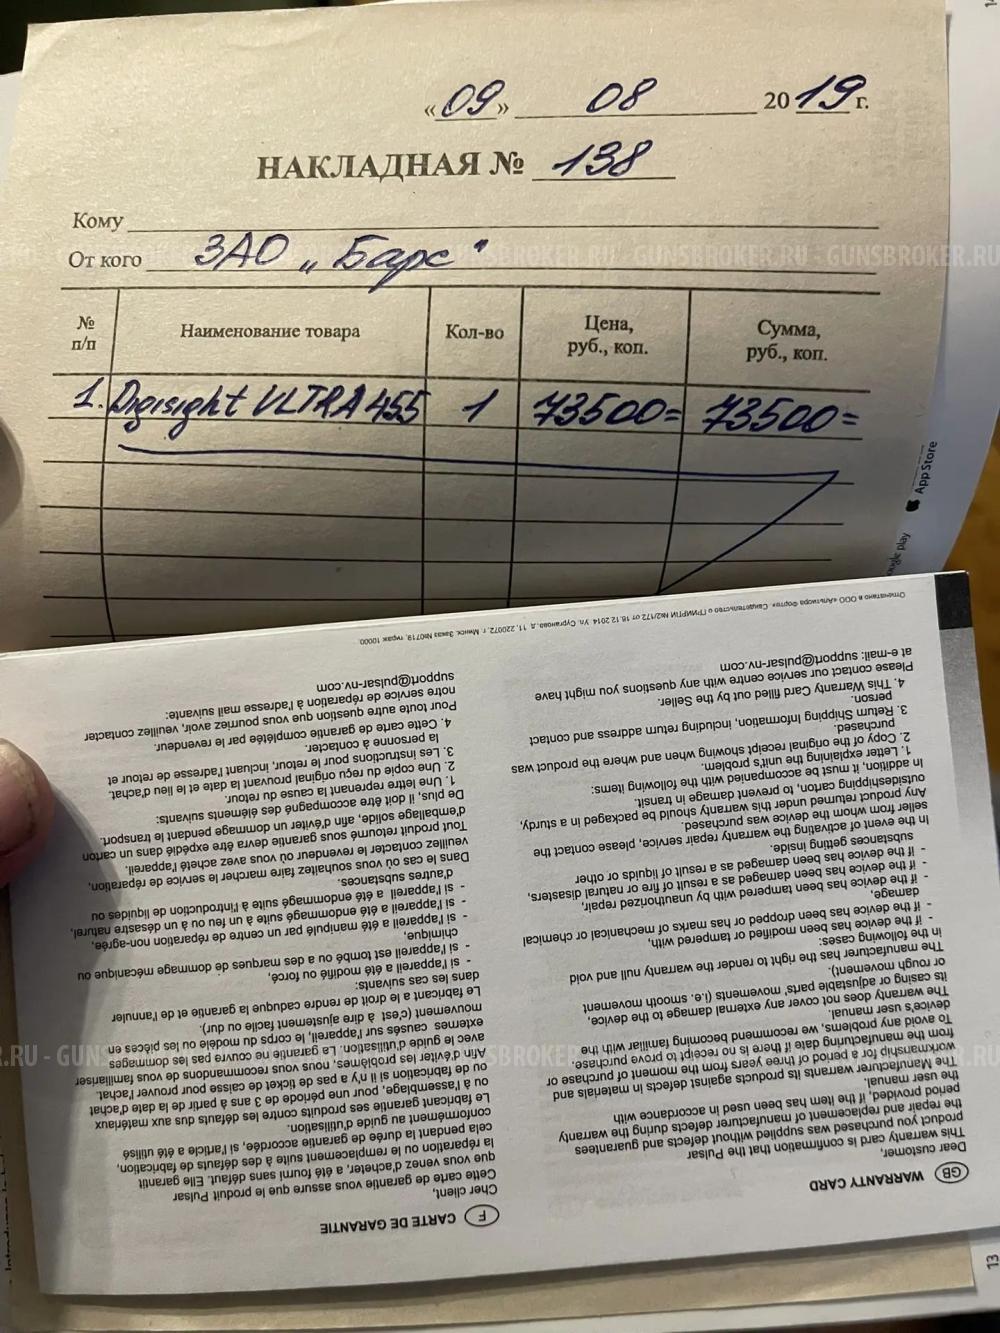 «09» 08 2019 г.
НАКЛАДНАЯ № 138
Кому
От кого ЗАО „Барс"
GUNSBROKER.RU - GUNSBROKER.RU - GUNSBROKER.RU
№ п/п Наименование товара Кол-во Цена, руб., коп. Сумма, руб., коп.
1. Digisight ULTRA 455 1 73500= 73500=
App Store
google play
Отпечатано в ООО «Альтиора Форте». Свидетельство о ГРИИРПИ №2/172 от 18.12.2014. Ул. Сурганова, д. 11, 220072, г. Минск. Заказ №0719, тираж 10000.
GB WARRANTY CARD
Dear customer,
This warranty card is confirmation that the Pulsar
product you purchased was supplied without defects and guarantees
the repair and replacement of manufacturer defects during the warranty
period provided, if the item has been used in accordance with
the user manual.
The Manufacturer warrants its products against defects in materials and
workmanship for a period of three years from the moment of purchase or
from the manufacturing date if there is no receipt to prove purchase.
To avoid any problems, we recommend becoming familiar with the
device's user manual.
The warranty does not cover any external damage to the device,
its casing or adjustable parts' movements (i.e. smooth movement
or rough movement).
The manufacturer has the right to render the warranty null and void
in the following cases:
- if the device has been modified or tampered with,
- if the device has been dropped or has marks of mechanical or chemical
damage,
- if the device has been tampered with by unauthorized repair,
- if the device has been damaged as a result of fire or natural disasters,
- if the device has been damaged as a result of liquids or other
substances getting inside.
In the event of activating the warranty repair service, please contact the
seller from whom the device was purchased.
Any product returned under this warranty should be packaged in a sturdy,
outsideshipping carton, to prevent damage in transit.
In addition, it must be accompanied with the following items:
1. Letter explaining the unit's problem.
2. Copy of the original receipt showing when and where the product was
purchased.
3. Return Shipping Information, including return address and contact
person.
4. This Warranty Card filled out by the Seller.
Please contact our service centre with any questions you might have
at e-mail: support@pulsar-nv.com
F CARTE DE GARANTIE
Cher client,
Cette carte de garantie vous assure que le produit Pulsar
que vous venez d'acheter, a été fourni sans défaut. Elle garantit
la réparation ou le remplacement suite à des défauts de fabrication,
cela pendant la durée de garantie accordée, si l'article a été utilisé
conformément au guide d'utilisation.
Le fabricant garantie ses produits contre les défauts dus aux matériaux
ou à l'assemblage, pour une période de 3 ans à partir de la date d'achat
ou de fabrication si il n'y a pas de ticket de caisse pour prouver l'achat.
Afin d'éviter les problèmes, nous vous recommandons de vous familiariser
avec le guide d'utilisation. La garantie ne couvre pas les dommages
externes causés sur l'appareil, le corps du modèle ou les pièces en
mouvement (c'est à dire ajustement facile ou dur).
Le fabricant a le droit de rendre caduque la garantie et de l'annuler
dans les cas suivants:
- si l'appareil a été modifié ou forcé,
- si l'appareil est tombé ou a des marques de dommage mécanique ou
chimique,
- si l'appareil a été manipulé par un centre de réparation non-agrée,
- si l'appareil a été endommagé suite à un feu ou à un désastre naturel,
- si l'appareil a été endommagé suite à l'introduction de liquides ou
d'autres substances.
Dans le cas où vous souhaitez faire marcher le service de réparation,
veuillez contacter le revendeur où vous avez acheté l'appareil.
Tout produit retourné sous garantie devra être expédié dans un carton
d'emballage solide, afin d'éviter un dommage pendant le transport.
De plus, il doit être accompagné des éléments suivants:
1. Une lettre reprenant la cause du retour.
2. Une copie du reçu original prouvant la date et le lieu d'achat.
3. Les instructions pour le retour, incluant l'adresse de retour et
la personne à contacter.
4. Cette carte de garantie complétée par le revendeur.
Pour toute autre question que vous pourriez avoir, veuillez contacter
notre service de réparation à l'adresse mail suivante:
support@pulsar-nv.com
13